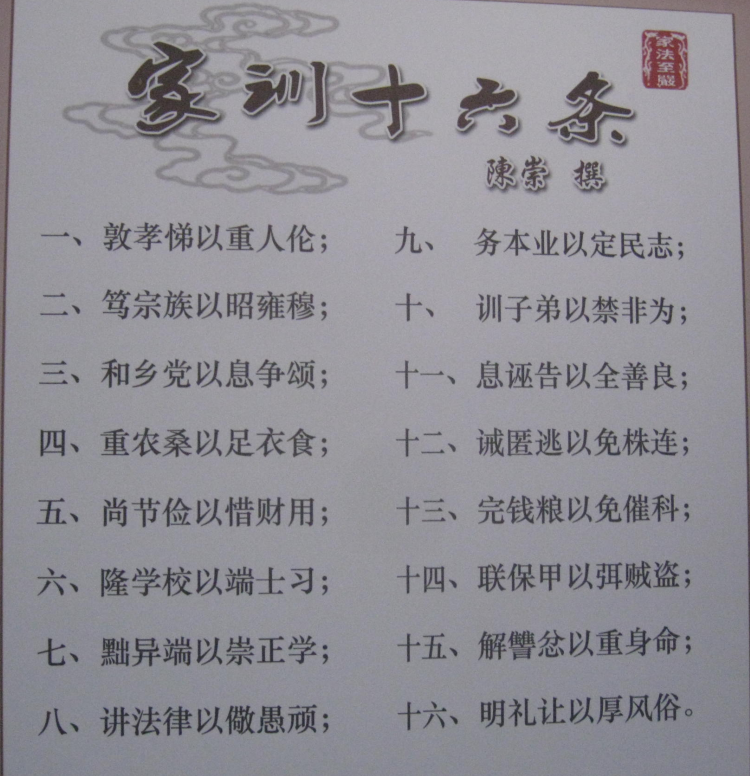 家训十六条
家法至嚴
陳崇 撰
一、敦孝悌以重人伦；
二、笃宗族以昭雍穆；
三、和乡党以息争颂；
四、重农桑以足衣食；
五、尚节俭以惜财用；
六、隆学校以端士习；
七、黜异端以崇正学；
八、讲法律以儆愚顽；
九、 务本业以定民志；
十、 训子弟以禁非为；
十一、息诬告以全善良；
十二、诫匿逃以免株连；
十三、完钱粮以免催科；
十四、联保甲以弭贼盗；
十五、解讐忿以重身命；
十六、明礼让以厚风俗。